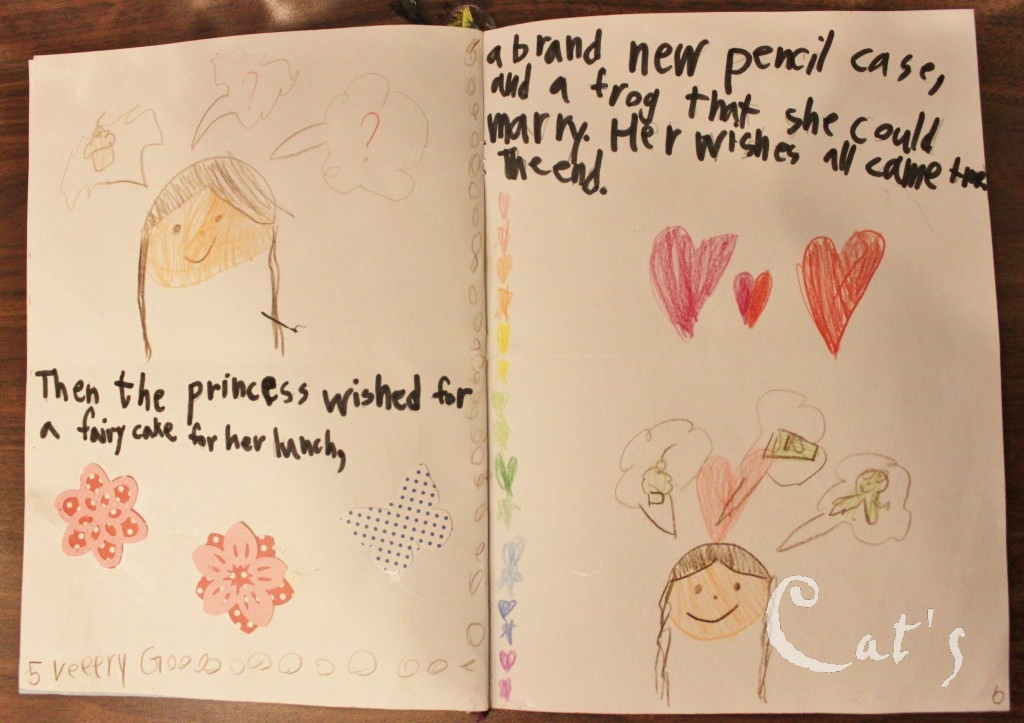 Then the princess wished for
a fairy cake for her lunch,
5 veeery Goooooooooo
a brand new pencil case,
and a frog that she could
marry. Her wishes all came true
The end.
Cat's
6